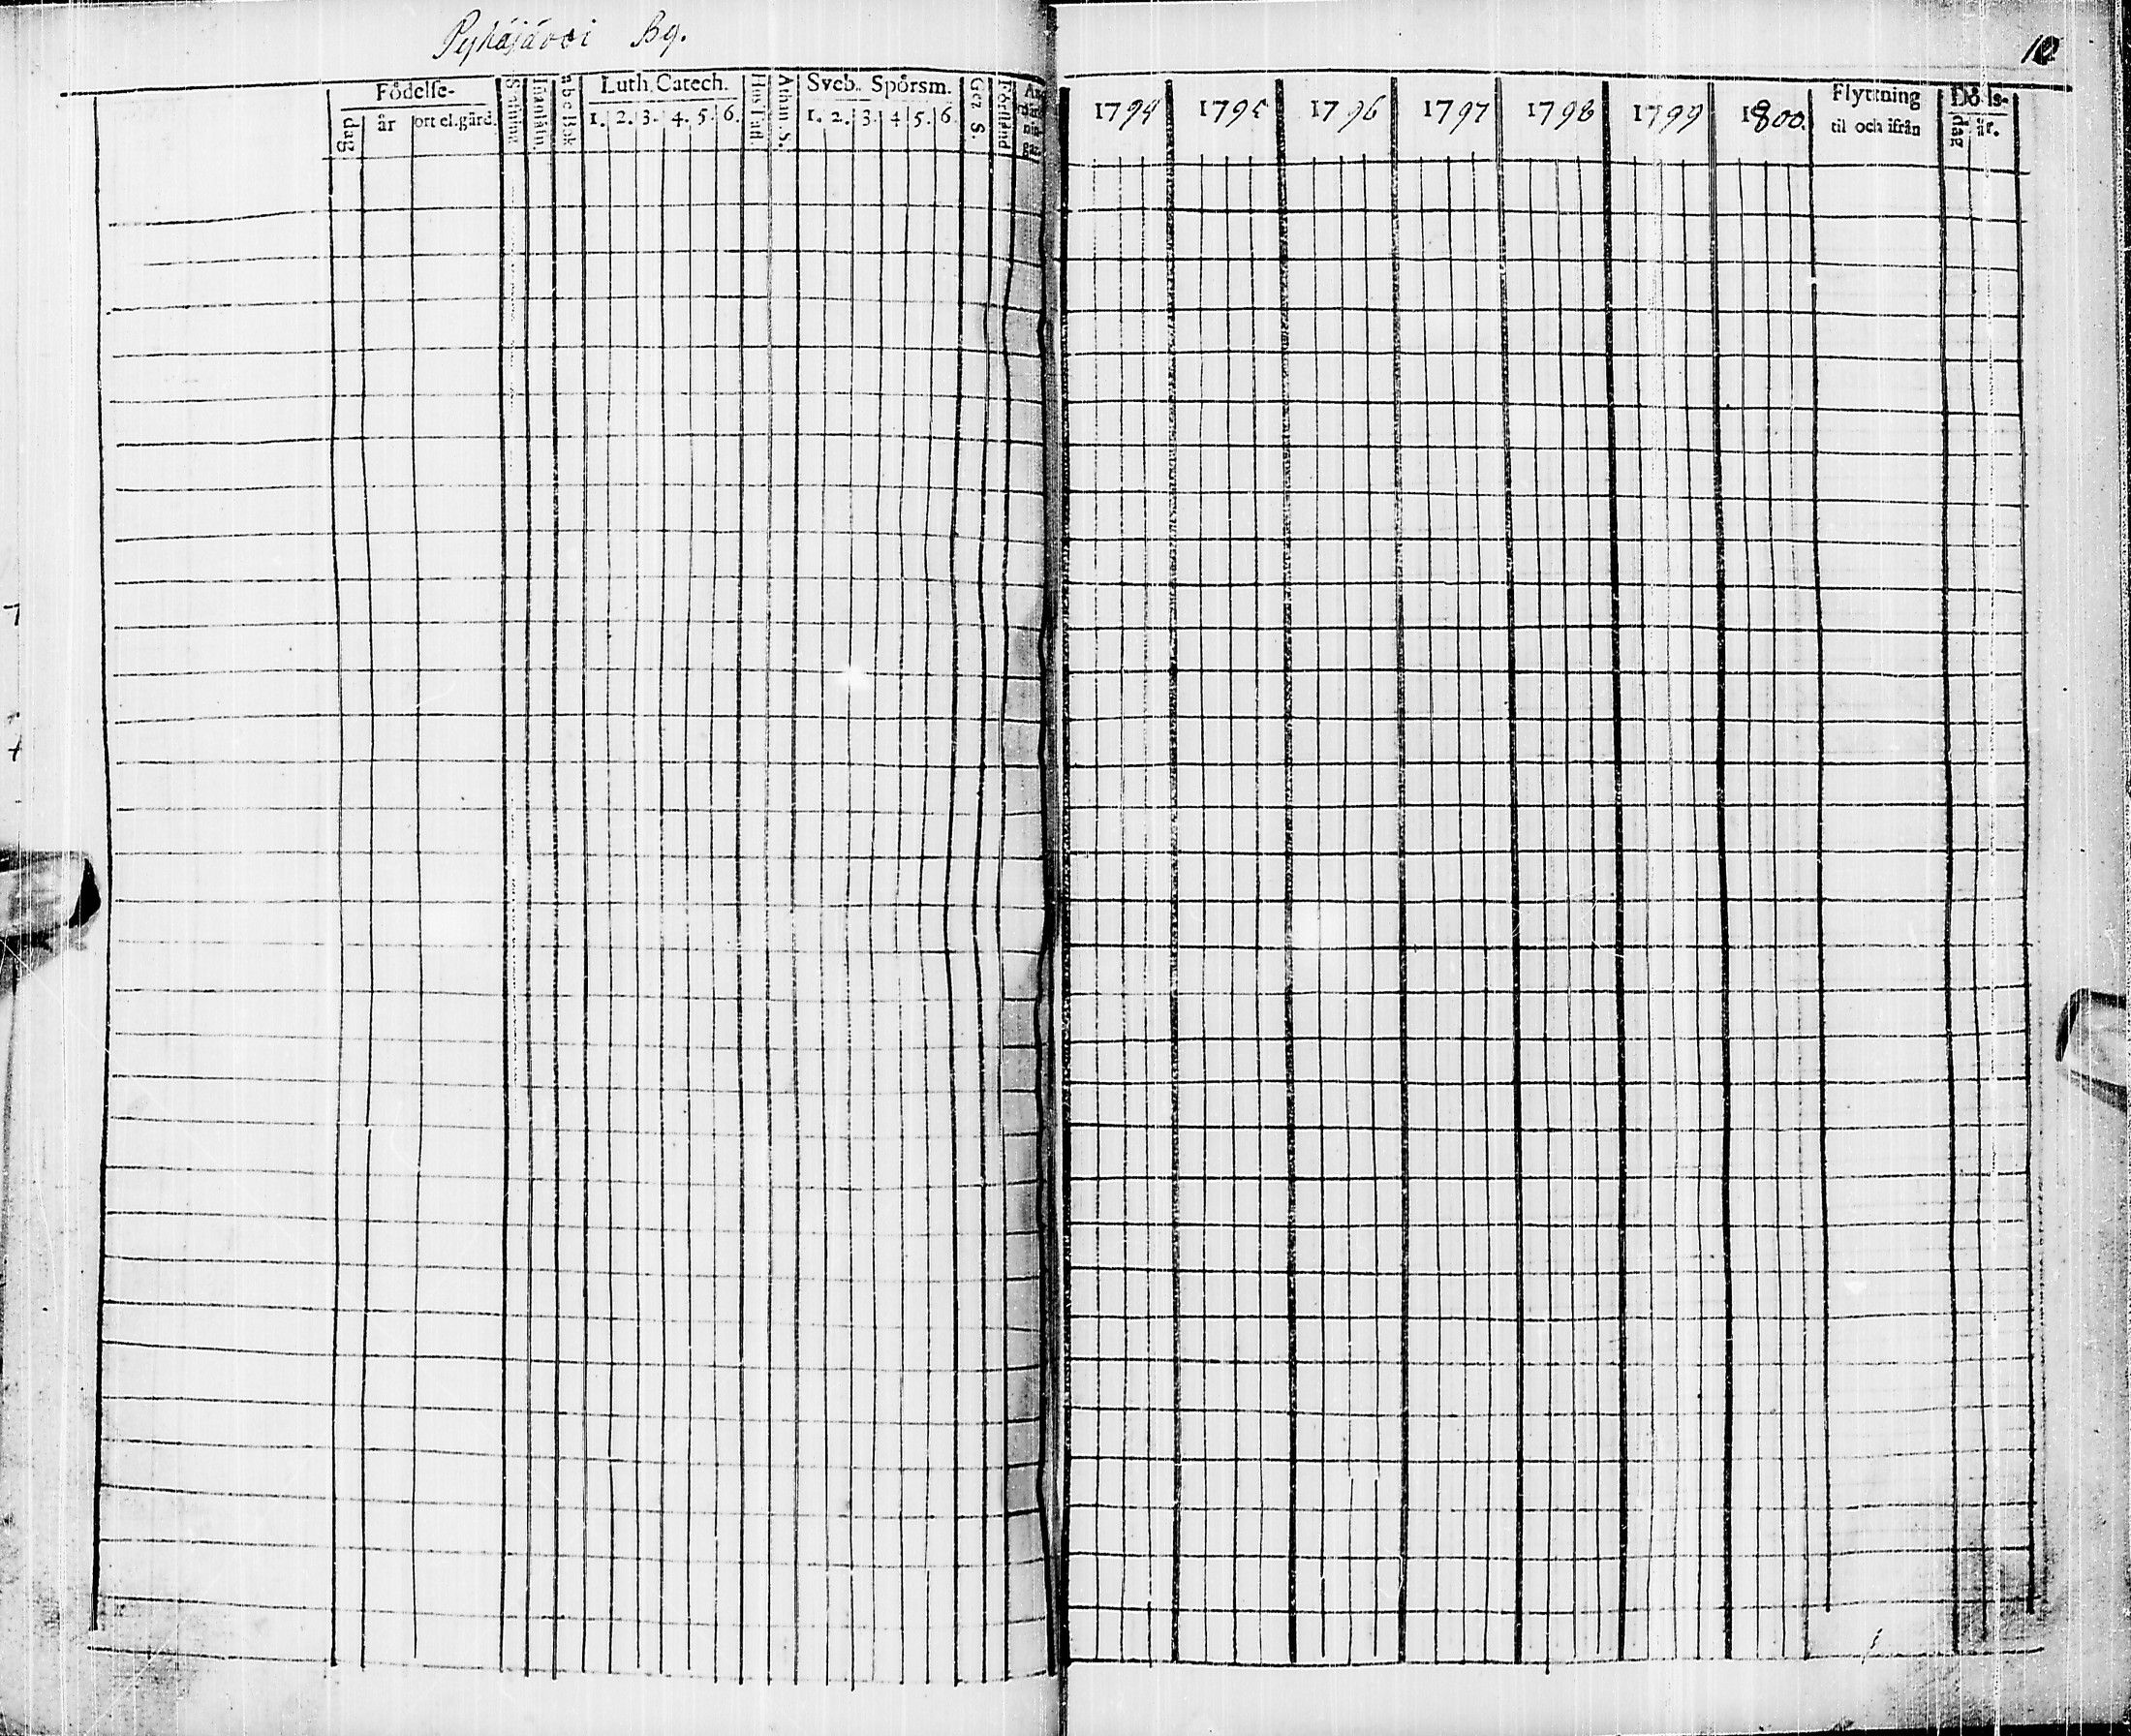 Pyhäjärvi By.
10
Födelse-
dag år ort el. gård.
Luth. Catech.
1. 2. 3. 4. 5. 6.
Hus Taf.
Athan. S.
Sveb. Spörsm.
1. 2. 3. 4. 5. 6.
Ger. S.
Förstånd
1794 1795 1796 1797 1798 1799 1800.
Flyttning
til och ifrån
Döds-
dag år.